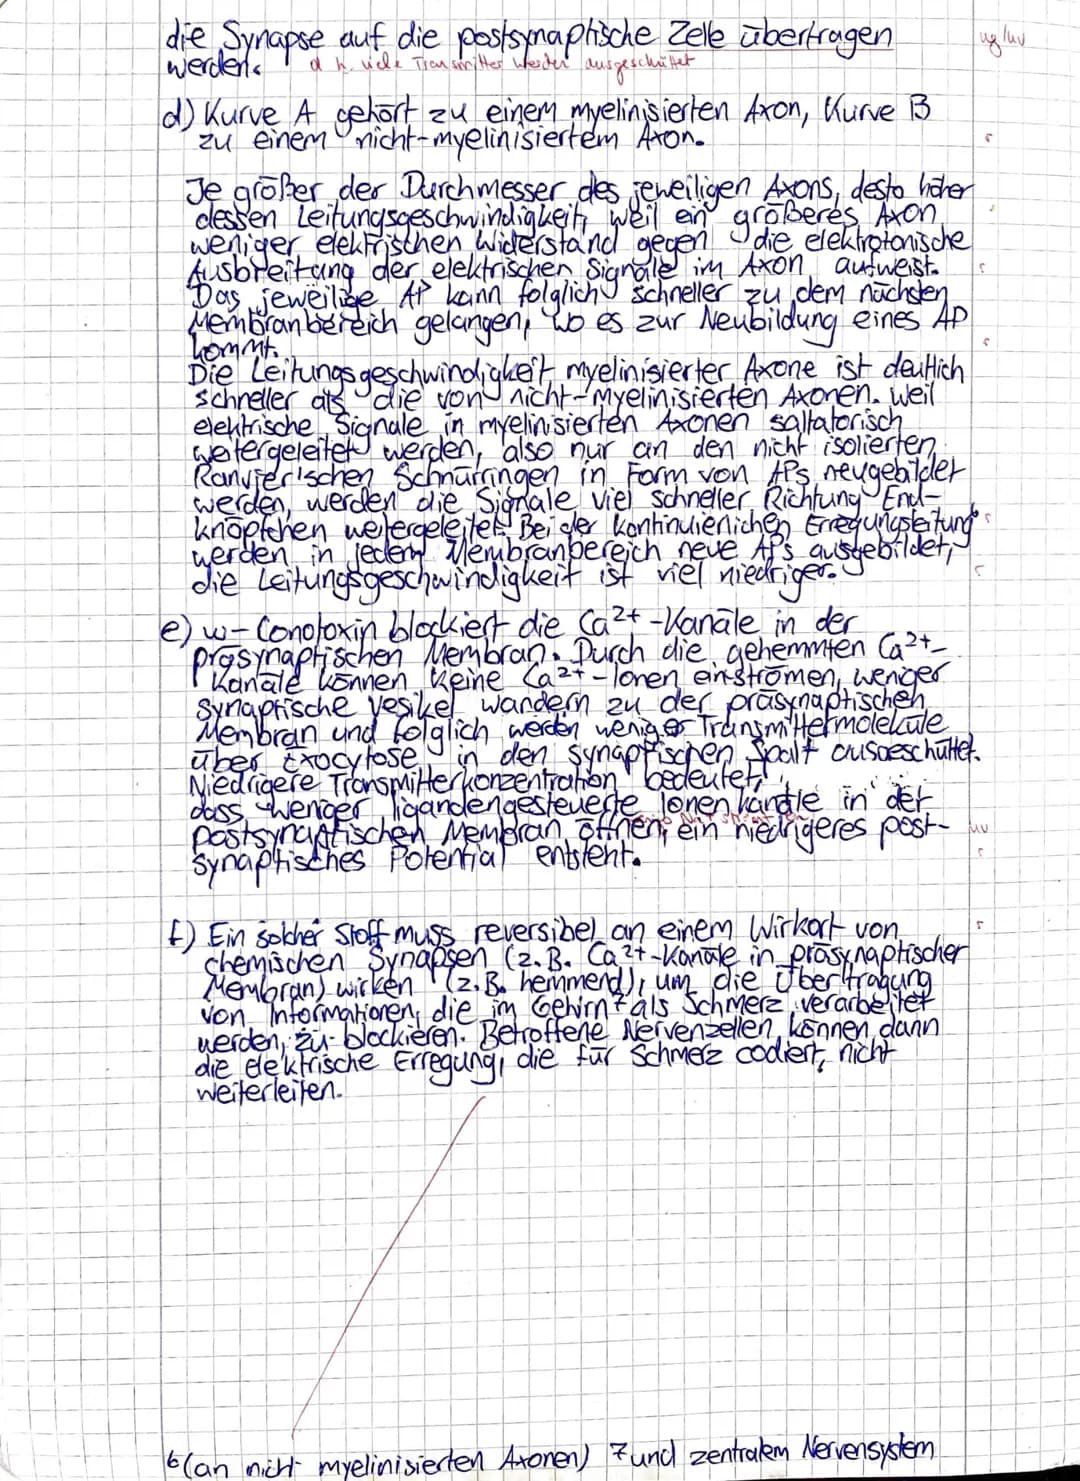 die Synapse auf die postsynaptische Zelle übertragen
ug/uv
werden.
d.h. viele Transmitter werden ausgeschüttet
d) Kurve A gehört zu einem myelinisierten Axon, Kurve B
zu einem nicht-myelinisiertem Axon.
Je größer der Durchmesser des jeweiligen Axons, desto höher
dessen Leitungsgeschwindigkeit, weil ein größeres Axon
weniger elektrischen Widerstand gegen die elektrotonische
Ausbreitung der elektrischen Signale im Axon aufweist.
Das jeweilige AP kann folglich schneller zu dem nächsten
Membranbereich gelangen, wo es zur Neubildung eines AP
kommt.
Die Leitungsgeschwindigkeit myelinisierter Axone ist deutlich
schneller als die von nicht-myelinisierten Axonen. Weil
elektrische Signale in myelinisierten Axonen saltatorisch
weitergeleitet werden, also nur an den nicht isolierten
Ranvier'schen Schnürringen in Form von APs neugebildet
werden, werden die Signale viel schneller Richtung End-
knöpfchen weitergeleitet. Bei der kontinuierlichen Erregungsleitung6
werden in jedem Membranbereich neue APs ausgebildet,
die Leitungsgeschwindigkeit ist viel niedriger.
e) w-Conotoxin blockiert die Ca2+-Kanäle in der
präsynaptischen Membran. Durch die gehemmten Ca2+-
Kanäle können keine Ca2+-Ionen einströmen, weniger
synaptische Vesikel wandern zu der präsynaptischen
Membran und folglich werden weniger Transmittermoleküle
über Exocytose in den synaptischen Spalt ausgeschüttet.
Niedrigere Transmitterkonzentration bedeutet,
dass weniger ligandengesteuerte Ionenkanäle in der
postsynaptischen Membran öffnen, ein niedrigeres post-
uv
synaptisches Potential entsteht.
f) Ein solcher Stoff muss reversibel an einem Wirkort von
chemischen Synapsen (z.B. Ca2+-Kanäle in präsynaptischer
Membran) wirken (z.B. hemmend), um die Übertragung
von Informationen, die im Gehirn7 als Schmerz verarbeitet
werden, zu blockieren. Betroffene Nervenzellen können dann
die elektrische Erregung, die für Schmerz codiert, nicht
weiterleiten.
6(an nicht myelinisierten Axonen) 7 und zentralem Nervensystem